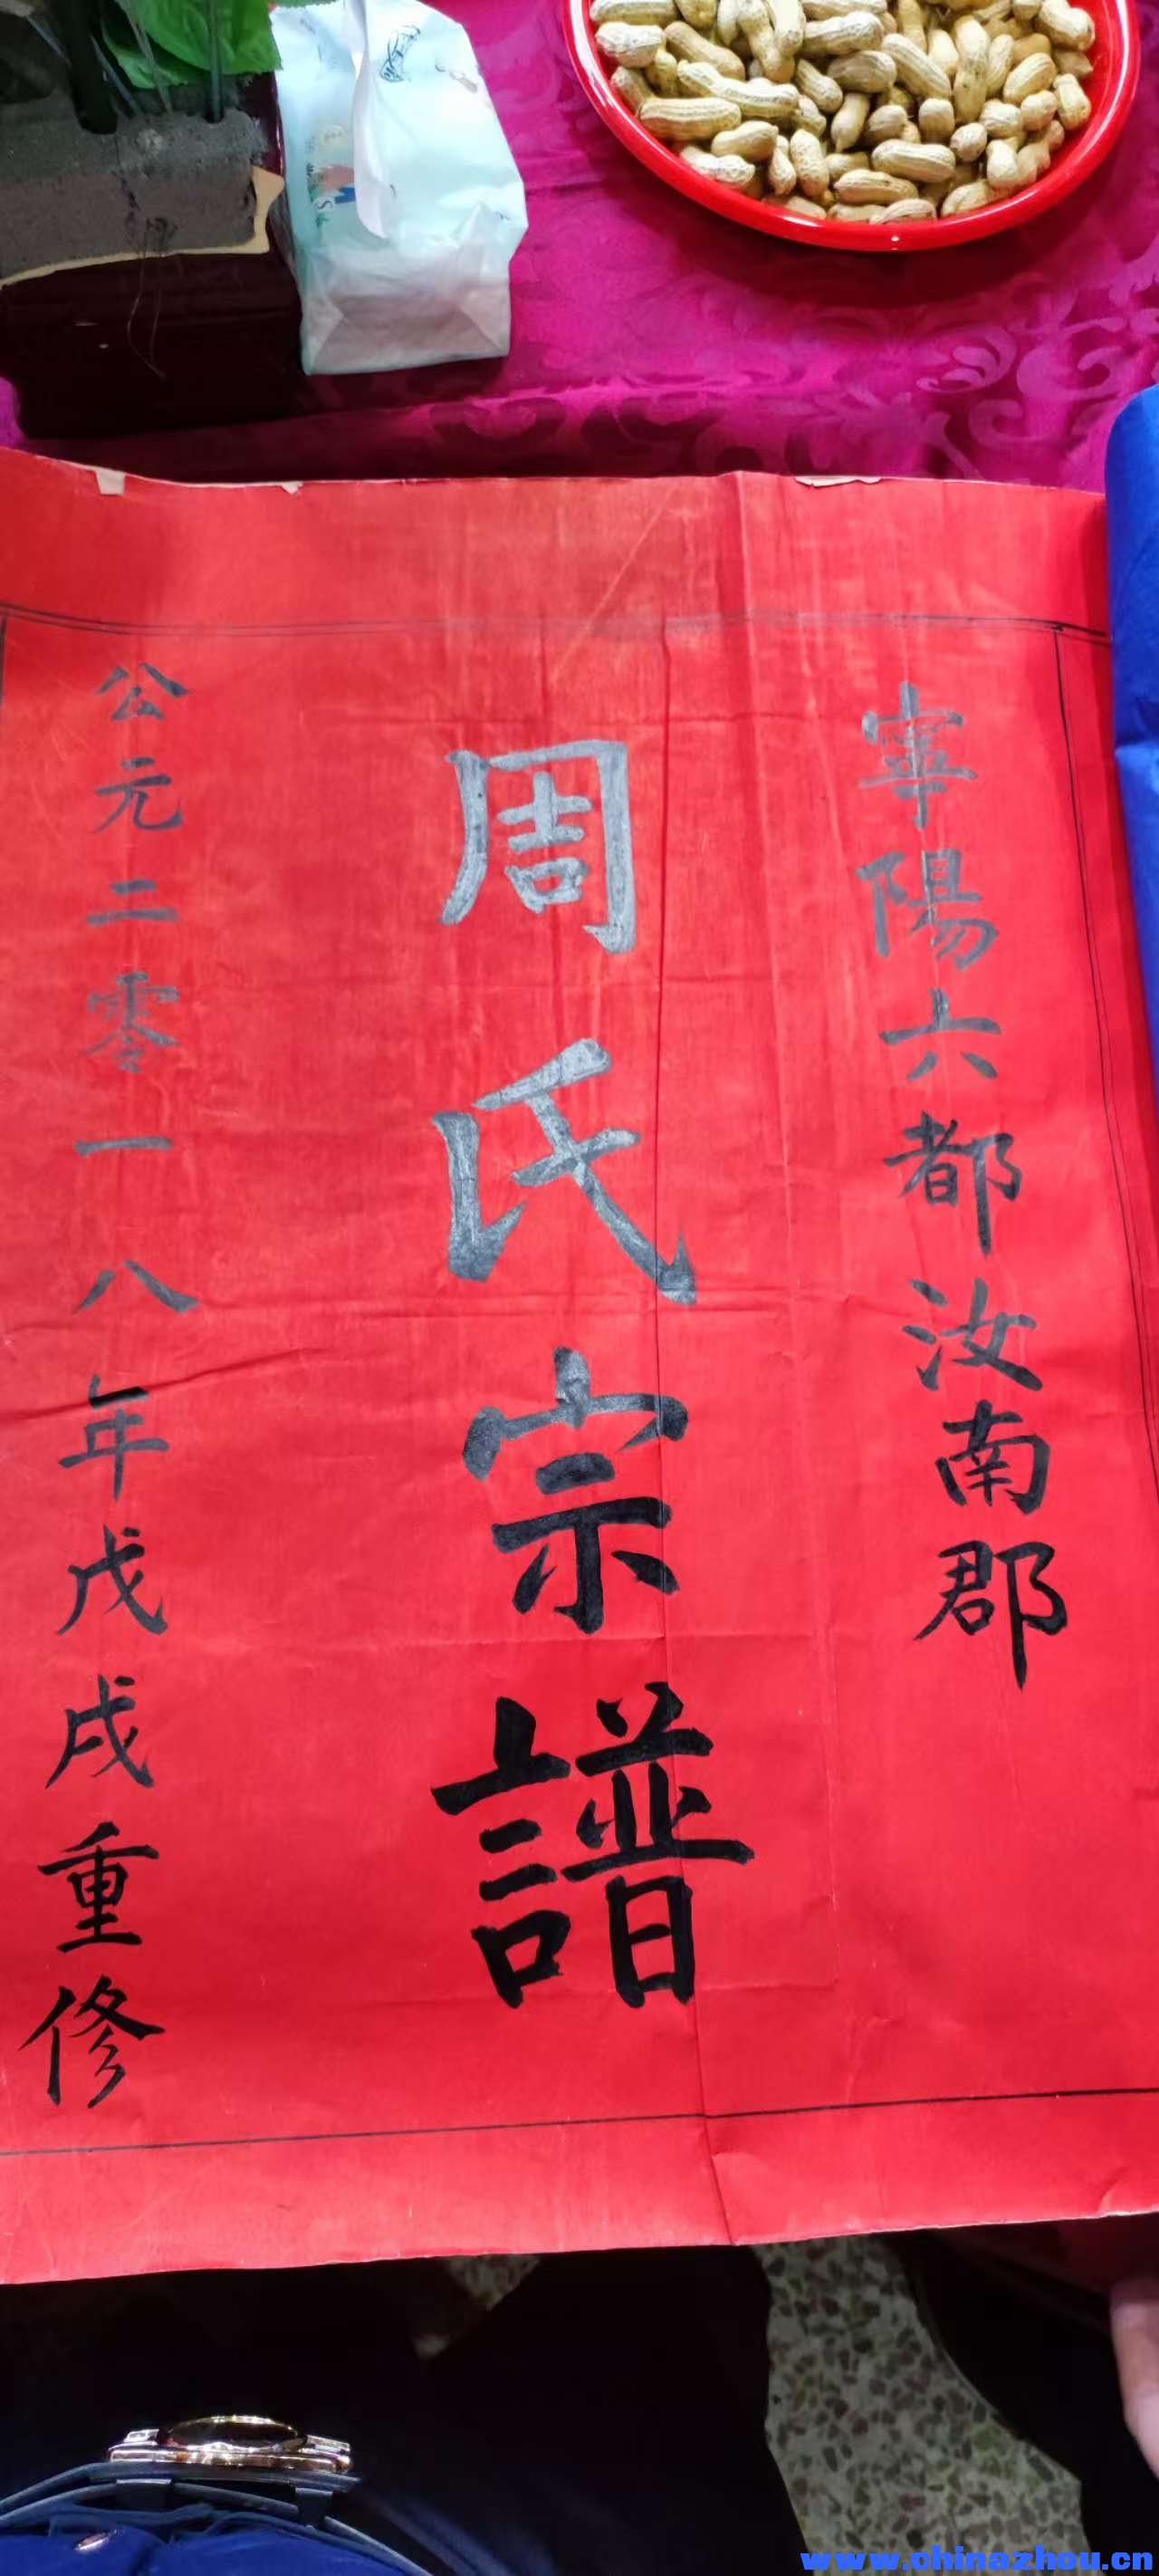 寧陽六都汝南郡
周氏宗譜
公元二零一八年戊戌重修
www.chinazhou.cn